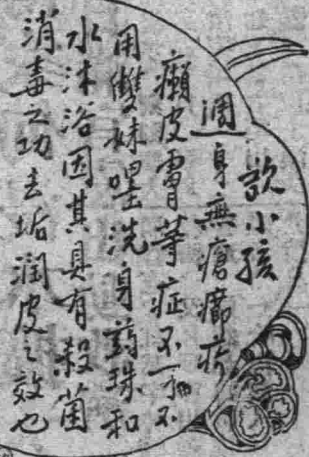 欲小孩
週身無瘡癤疥
癩皮膚等症不可不
用雙妹嘜洗身藥珠和
水沐浴因其具有殺菌
消毒之功去垢潤皮之效也